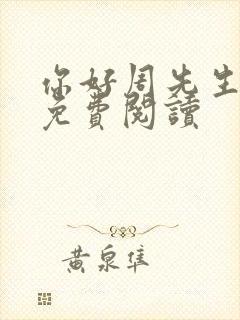 你好周先生
免費閱讀
黃泉隼